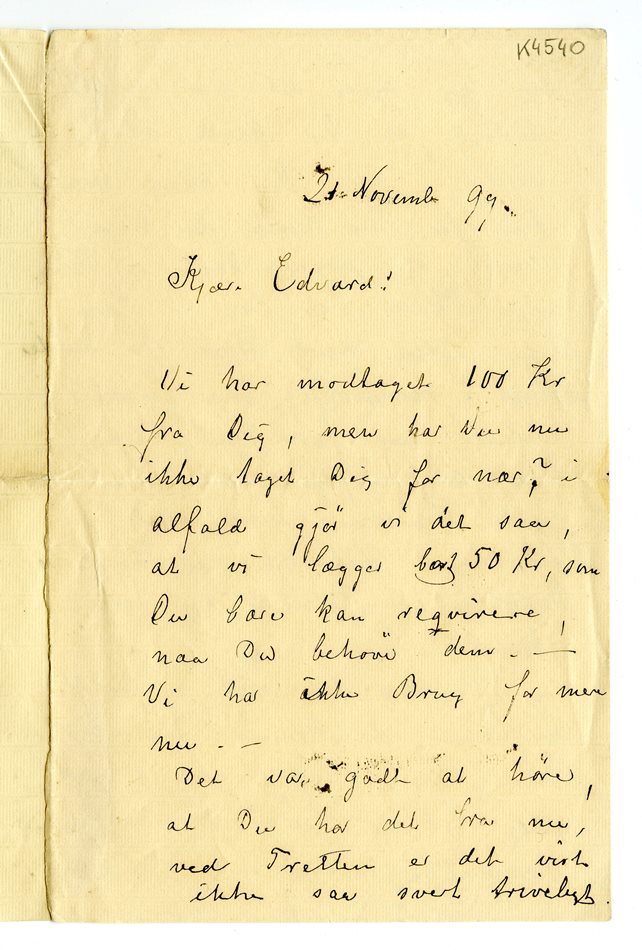 K4540
21 Novemb 99.
Kjære Edvard!
Vi har modtaget 100 Kr
fra Dig, men har Du nu
ikke taget Dig for nær? i
alfald gjör vi det saa,
at vi lægger bort 50 Kr, som
Du bare kan reqvirere,
naa Du behövè dem. —
Vi har ikke Brug for mere
nu. —
Det var godt at höre,
at Du har det bra nu,
ved Tretten er det vist
ikke saa svert triveligt.